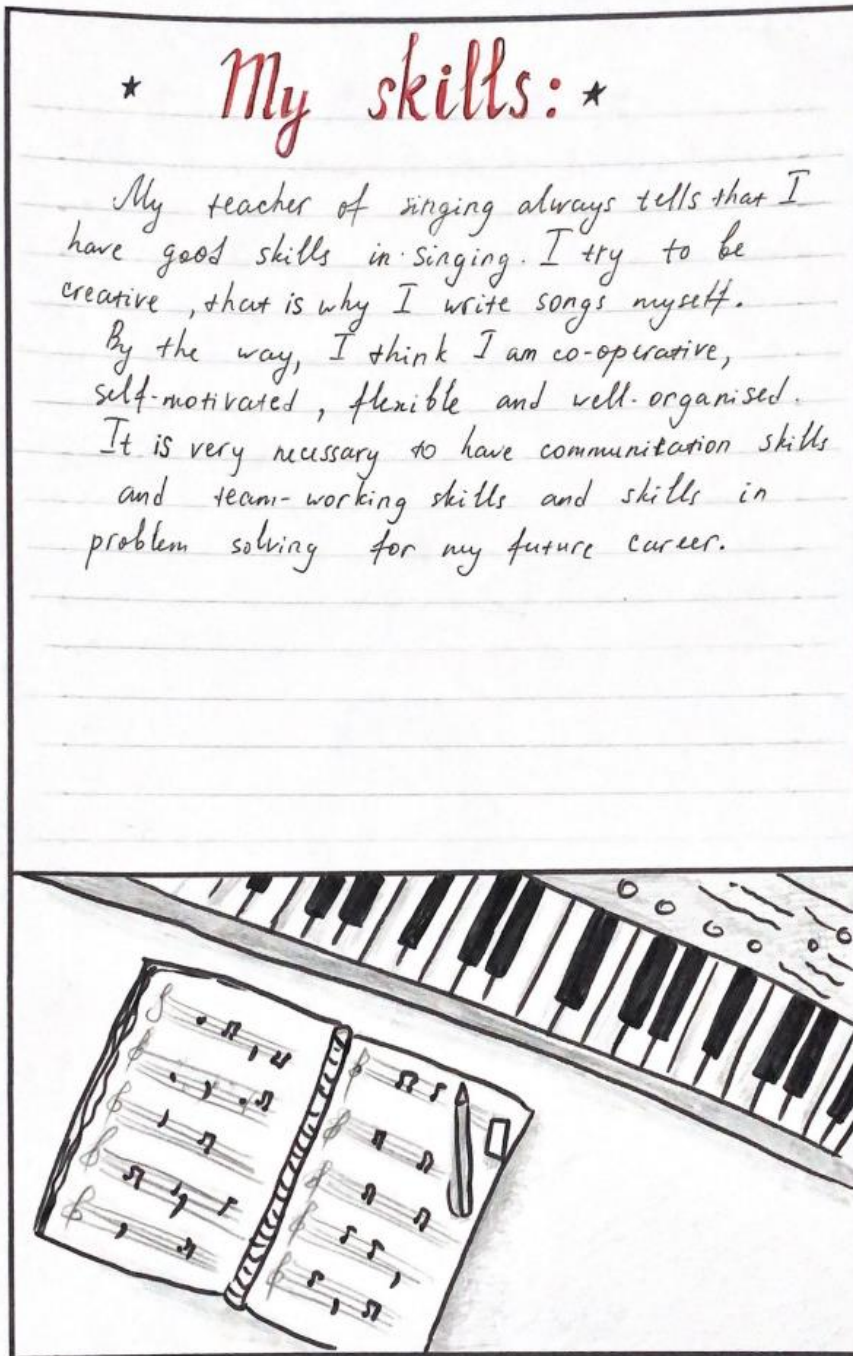 ★ My skills: ★
My teacher of singing always tells that I
have good skills in singing. I try to be
creative, that is why I write songs myself.
By the way, I think I am co-operative,
self-motivated, flexible and well-organised.
It is very necessary to have communication skills
and team-working skills and skills in
problem solving for my future career.